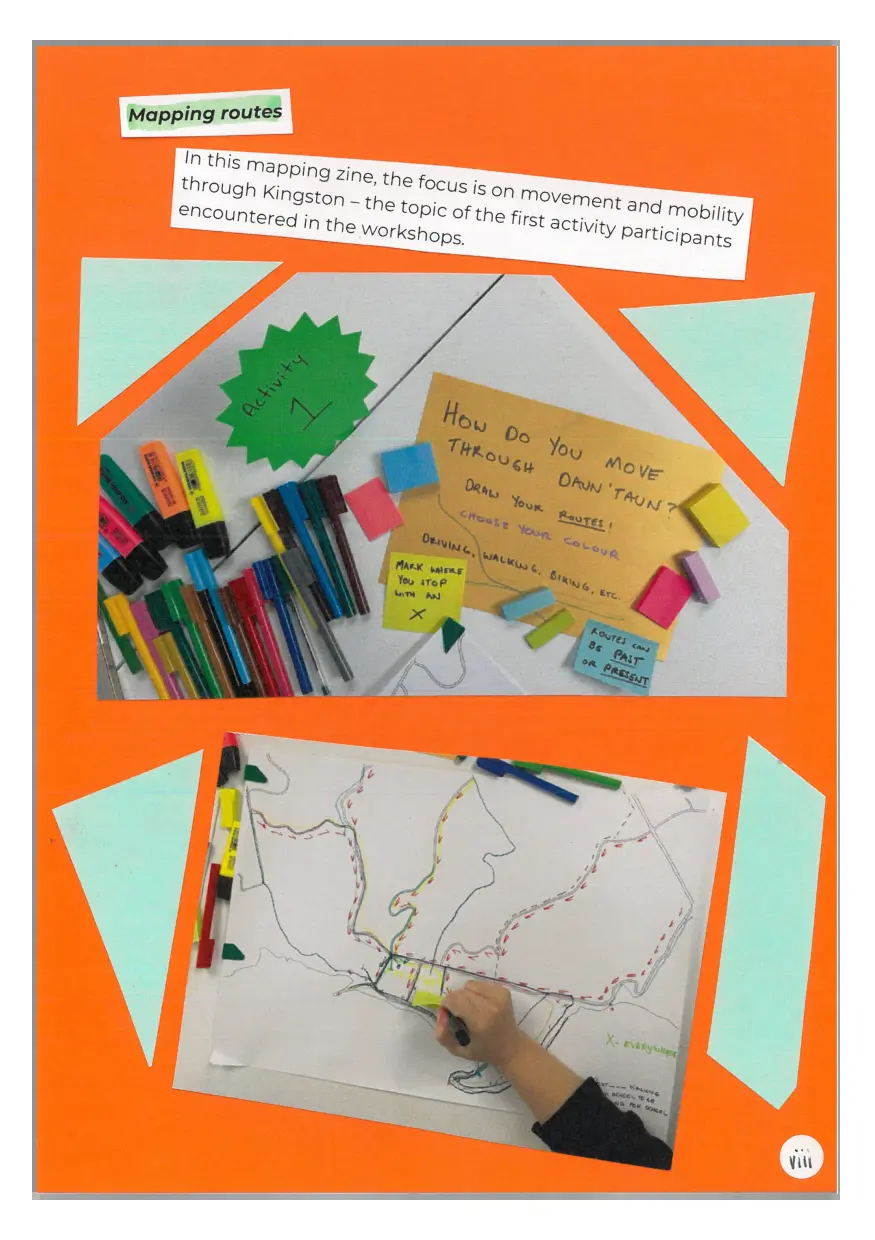 Mapping routes
In this mapping zine, the focus is on movement and mobility
through Kingston – the topic of the first activity participants
encountered in the workshops.
Activity
1
HOW DO YOU MOVE
THROUGH DAUN'TAUN?
DRAW YOUR ROUTES!
CHOOSE YOUR COLOUR
DRIVING, WALKING, BIKING, ETC.
MARK WHERE
YOU STOP
WITH AN
X
ROUTES CAN
BE PAST
OR PRESENT
X- EVERYWHERE
WALKING
SCHOOL
SCHOOL
viii